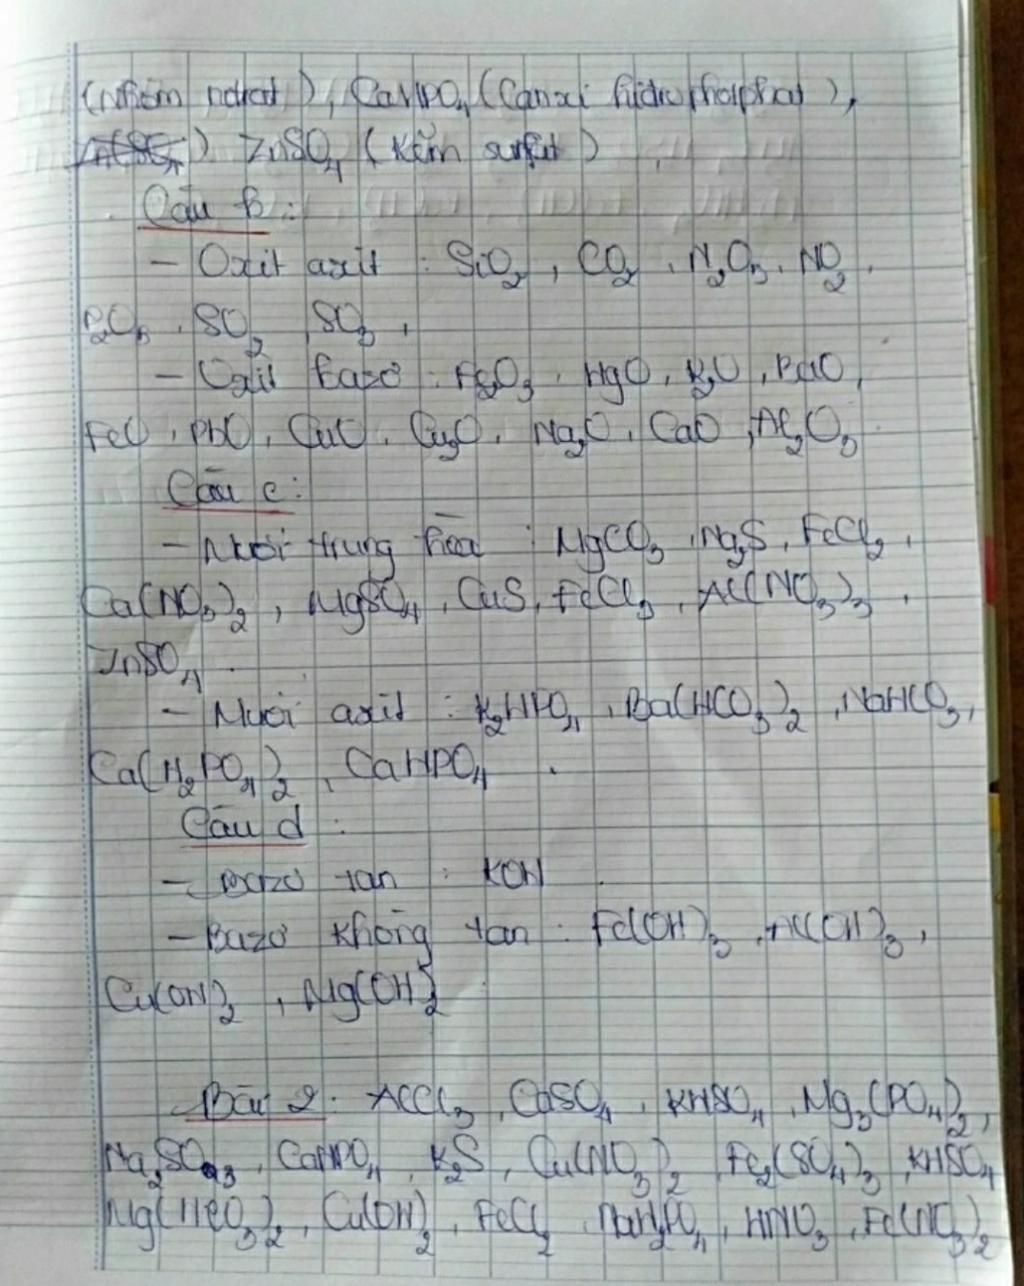 (Nhôm nitrat), CaHPO₄ (Canxi hiđrophotphat),
ZnSO₄ (Kẽm sunfat)
Câu b:
- Oxit axit : SiO₂, CO₂, N₂O₅, NO₂,
P₂O₅, SO₂, SO₃,
- Oxit bazơ : Fe₂O₃, HgO, K₂O, BaO,
FeO, PbO, CuO, Cu₂O, Na₂O, CaO, Al₂O₃.
Câu c:
- Muối trung hòa : MgCO₃, Na₂S, FeCl₂,
Ca(NO₃)₂, MgSO₄, CuS, FeCl₃, Al(NO₃)₃,
ZnSO₄.
- Muối axit : K₂HPO₄, Ba(HCO₃)₂, NaHCO₃,
Ca(H₂PO₄)₂, CaHPO₄.
Câu d:
- Bazơ tan : KOH.
- Bazơ không tan : Fe(OH)₃, Al(OH)₃,
Cu(OH)₂, Mg(OH)₂
Bài 2: AlCl₃, CaSO₄, KHSO₄, Mg₃(PO₄)₂,
Na₂SO₃, CaHPO₄, K₂S, Cu(NO₃)₂, Fe₂(SO₄)₃, KHSO₄
Mg(HCO₃)₂, Cu(OH)₂, FeCl₂, NaH₂PO₄, HNO₃, Fe(NO₃)₂